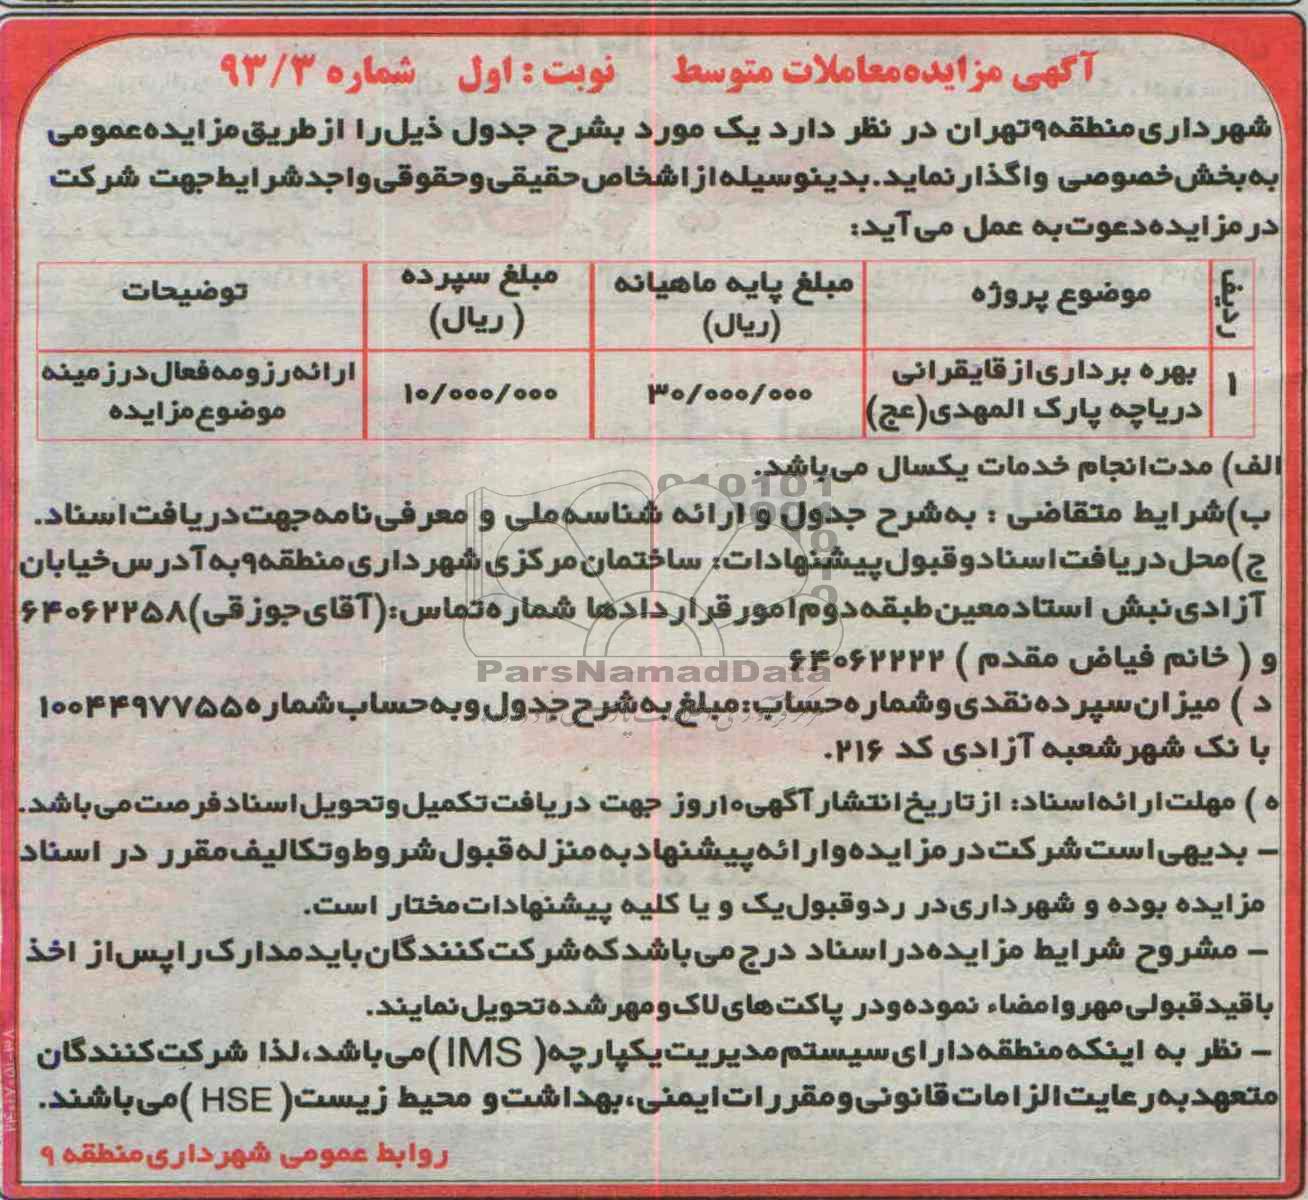 آگهی مزایده معاملات متوسط نوبت : اول شماره ۹۳/۳
شهرداری منطقه ۹ تهران در نظر دارد یک مورد بشرح جدول ذیل را از طریق مزایده عمومی
به بخش خصوصی واگذار نماید. بدینوسیله از اشخاص حقیقی و حقوقی واجد شرایط جهت شرکت
در مزایده دعوت به عمل می آید:
ردیف موضوع پروژه مبلغ پایه ماهیانه (ریال) مبلغ سپرده (ریال) توضیحات
۱ بهره برداری از قایقرانی دریاچه پارک المهدی (عج) ۳۰/۰۰۰/۰۰۰ ۱۰/۰۰۰/۰۰۰ ارائه رزومه فعال در زمینه موضوع مزایده
الف) مدت انجام خدمات یکسال می باشد.
ب) شرایط متقاضی : به شرح جدول و ارائه شناسه ملی و معرفی نامه جهت دریافت اسناد.
ج) محل دریافت اسناد و قبول پیشنهادات: ساختمان مرکزی شهرداری منطقه ۹ به آدرس خیابان
آزادی نبش استاد معین طبقه دوم امور قراردادها شماره تماس: (آقای جوزقی) ۶۴۰۶۲۲۵۸
و ( خانم فیاض مقدم ) ۶۴۰۶۲۲۲۲
د ) میزان سپرده نقدی و شماره حساب: مبلغ به شرح جدول و به حساب شماره ۱۰۰۴۴۹۷۷۵۵
با نک شهر شعبه آزادی کد ۲۱۶.
ه ) مهلت ارائه اسناد: از تاریخ انتشار آگهی ۱۰ روز جهت دریافت تکمیل و تحویل اسناد فرصت می باشد.
– بدیهی است شرکت در مزایده و ارائه پیشنهاد به منزله قبول شروط و تکالیف مقرر در اسناد
مزایده بوده و شهرداری در رد و قبول یک و یا کلیه پیشنهادات مختار است.
– مشروح شرایط مزایده در اسناد درج می باشد که شرکت کنندگان باید مدارک را پس از اخذ
با قید قبولی مهر و امضاء نموده و در پاکت های لاک و مهر شده تحویل نمایند.
– نظر به اینکه منطقه دارای سیستم مدیریت یکپارچه ( IMS ) می باشد، لذا شرکت کنندگان
متعهد به رعایت الزامات قانونی و مقررات ایمنی، بهداشت و محیط زیست ( HSE ) می باشند.
روابط عمومی شهرداری منطقه ۹
ParsNamadData